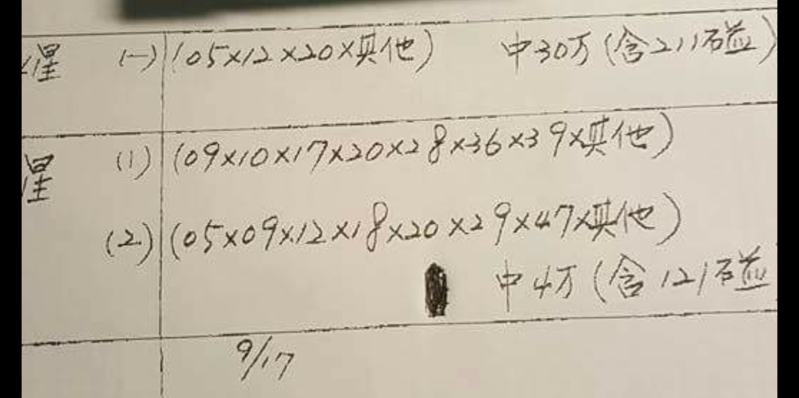 星 (一) (05×12×20×其他) 中30万(含211碰)
星 (1) (09×10×17×20×28×36×39×其他)
(2) (05×09×12×18×20×29×47×其他)
中4万(含121碰
9/17